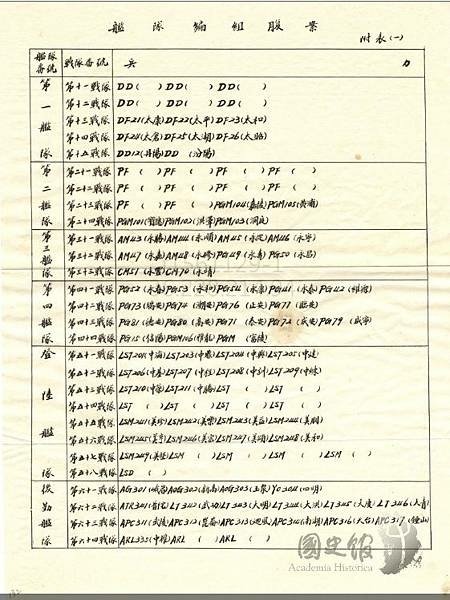 艦隊編組腹案
附表(一)
艦隊番號 戰隊番號 兵 力
第一艦隊
第十一戰隊 DD( )DD( )DD( )
第十二戰隊 DD( )DD( )DD( )
第十三戰隊 DF21(太康)DF22(太平)DF23(太和)
第十四戰隊 DF24(太倉)DF25(太湖)DF26(太昭)
第十五戰隊 DD12(丹陽)DD (汾陽)
第二艦隊
第二十一戰隊 PF ( )PF ( )PF ( )PF ( )
第二十二戰隊 PF ( )PF ( )PF ( )PF ( )
第二十三戰隊 PF ( )PF ( )PGM104(嘉陵)PGM105(黃埔)
第二十四戰隊 PGM101 PGM102(洪澤)PGM103(洞庭)
第三艦隊
第三十一戰隊 AM43(永勝)AM44(永順)AM45(永定)AM46(永寧)
第三十二戰隊 AM47(永嘉)AM48(永修)PG49 PG50(永昌)
第三十三戰隊 CM51 CM70(永靖)
第四艦隊
第四十一戰隊 PG52(永春)PG53(永和)PG54(永康)PG41(永泰)PG42(維源)
第四十二戰隊 PG73 PG74 PG76(正安)PG77(臨安)
第四十三戰隊 PG81(德安)PG80(高安)PG71(泰安)PG72(武安)PG79(咸寧)
第四十四戰隊 PG15(信陽)PGM106(雅龍)PGM (富陵)
登陸艦隊
第五十一戰隊 LST201(中海)LST203 LST204(中興)LST205(中建)
第五十二戰隊 LST206 LST207 LST208(中訓)LST209(中練)
第五十三戰隊 LST210(中榮)LST211 LST ( )LST ( )
第五十四戰隊 LST ( )LST ( )LST ( )LST ( )
第五十五戰隊 LSM241(美珍)LSM242(美樂)LSM243(美益)LSM244(美朋)
第五十六戰隊 LSM245(美亨)LSM246(美宏)LSM247(美頌)LSM248(美和)
第五十七戰隊 LSM249 LSM ( )LSM ( )LSM ( )
第五十八戰隊 LSD ( )
後勤艦隊
第六十一戰隊 AG301(峨嵋)AOG302(新高)AOG303(玉泉)YO304(四明)
第六十二戰隊 ATR341 LT342(武功)LT343(大明)LT344(大洪)LT345(大慶)LT346(大青)
第六十三戰隊 APC311(武陵)APC312(崑崙)APC313 APC314(南湖)APC316(天台)APC317(鍾山)
第六十四戰隊 ARL335(中權)ARL ( )ARL ( )
國史館
Academia Historica